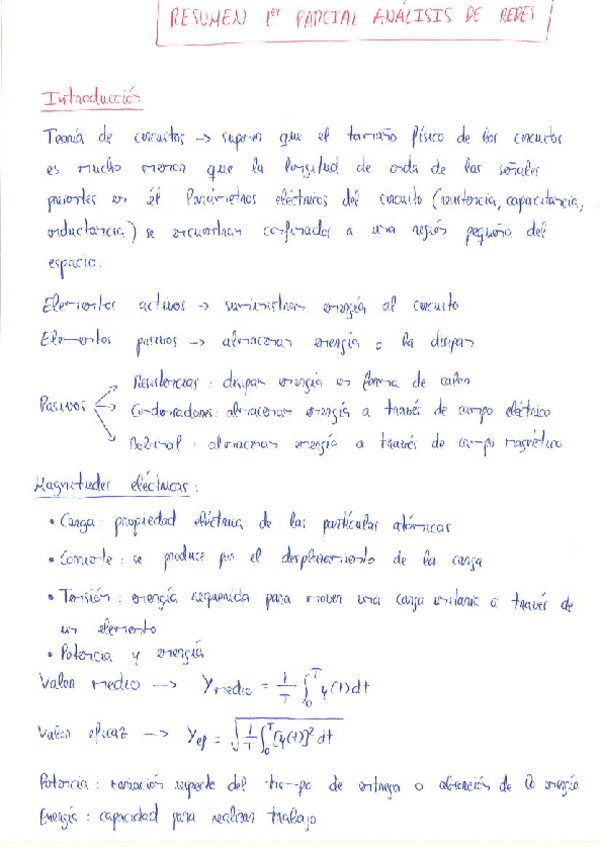 RESUMEN 1er PARCIAL ANÁLISIS DE REDES
Introducción
Teoría de circuitos → suponer que el tamaño físico de los circuitos
es mucho menor que la longitud de onda de las señales
presentes en él. Parámetros eléctricos del circuito (resistencia, capacitancia,
inductancia) se encuentran confinados a una región pequeña del
espacio.
Elementos activos → suministran energía al circuito
Elementos pasivos → almacenan energía o la disipan
Pasivos
→ Resistencias : disipan energía en forma de calor
→ Condensadores: almacenan energía a través de campo eléctrico
→ Bobinas : almacenan energía a través de campo magnético
Magnitudes eléctricas :
• Carga : propiedad eléctrica de las partículas atómicas
• Corriente : se produce por el desplazamiento de la carga
• Tensión : energía requerida para mover una carga unitaria a través de
un elemento
• Potencia y energía
Valor medio → Ymedio = 1/T ∫₀ᵀ y(t)dt
Valor eficaz → Yef = √(1/T ∫₀ᵀ [y(t)]² dt)
Potencia : variación respecto del tiempo de entrega o absorción de la energía
Energía : capacidad para realizar trabajo